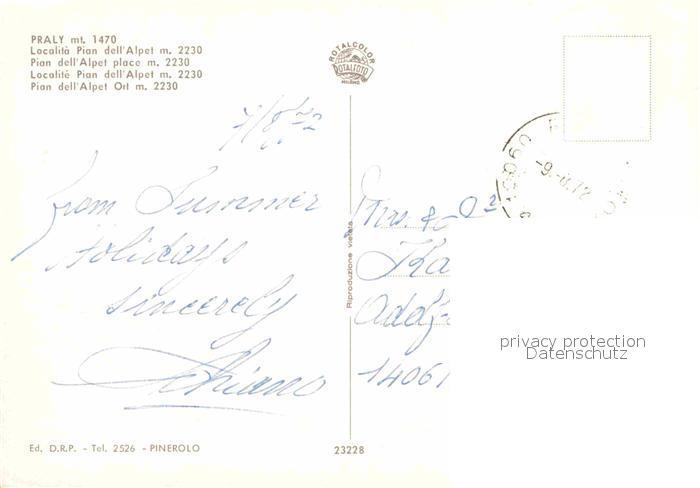 PRALY mt. 1470
Località Pian dell'Alpet m. 2230
Pian dell'Alpet place m. 2230
Localité Pian dell'Alpet m. 2230
Pian dell'Alpet Ort m. 2230
ROTALCOLOR
ROTALFOTO
MILANO
7/8/72
from Summer
Holidays
sincerely
Mrs. &
Ka
Adolf-
14061
Riproduzione vietata
-9.-8.72
privacy protection
Datenschutz
Ed. D.R.P. - Tel. 2526 - PINEROLO
23228